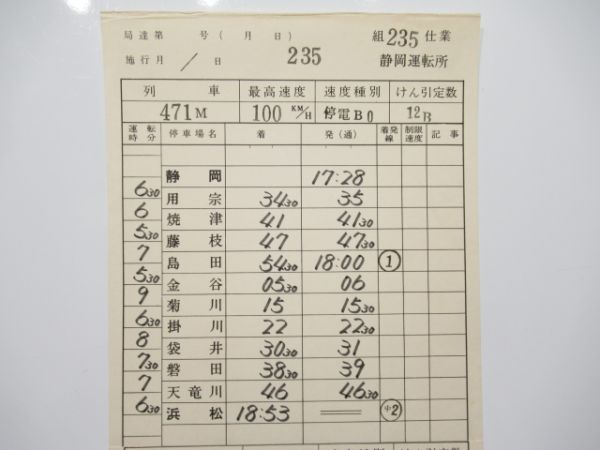 局達第 号( 月 日) 235 組 235 仕業
施行月 / 日 静岡運転所
列 車 最高速度 速度種別 けん引定数
471M 100 KM/H 停電B0 12B
運転時分 停車場名 着 発(通) 着発線 制限速度 記事
静岡 17:28
6 30
用宗 34 30 35
6
焼津 41 41 30
5 30
藤枝 47 47 30
7
島田 54 30 18:00 ①
5 30
金谷 05 30 06
9
菊川 15 15 30
6 30
掛川 22 22 30
8
袋井 30 30 31
7 30
磐田 38 30 39
7
天竜川 46 46 30
6 30
浜松 18:53 中2